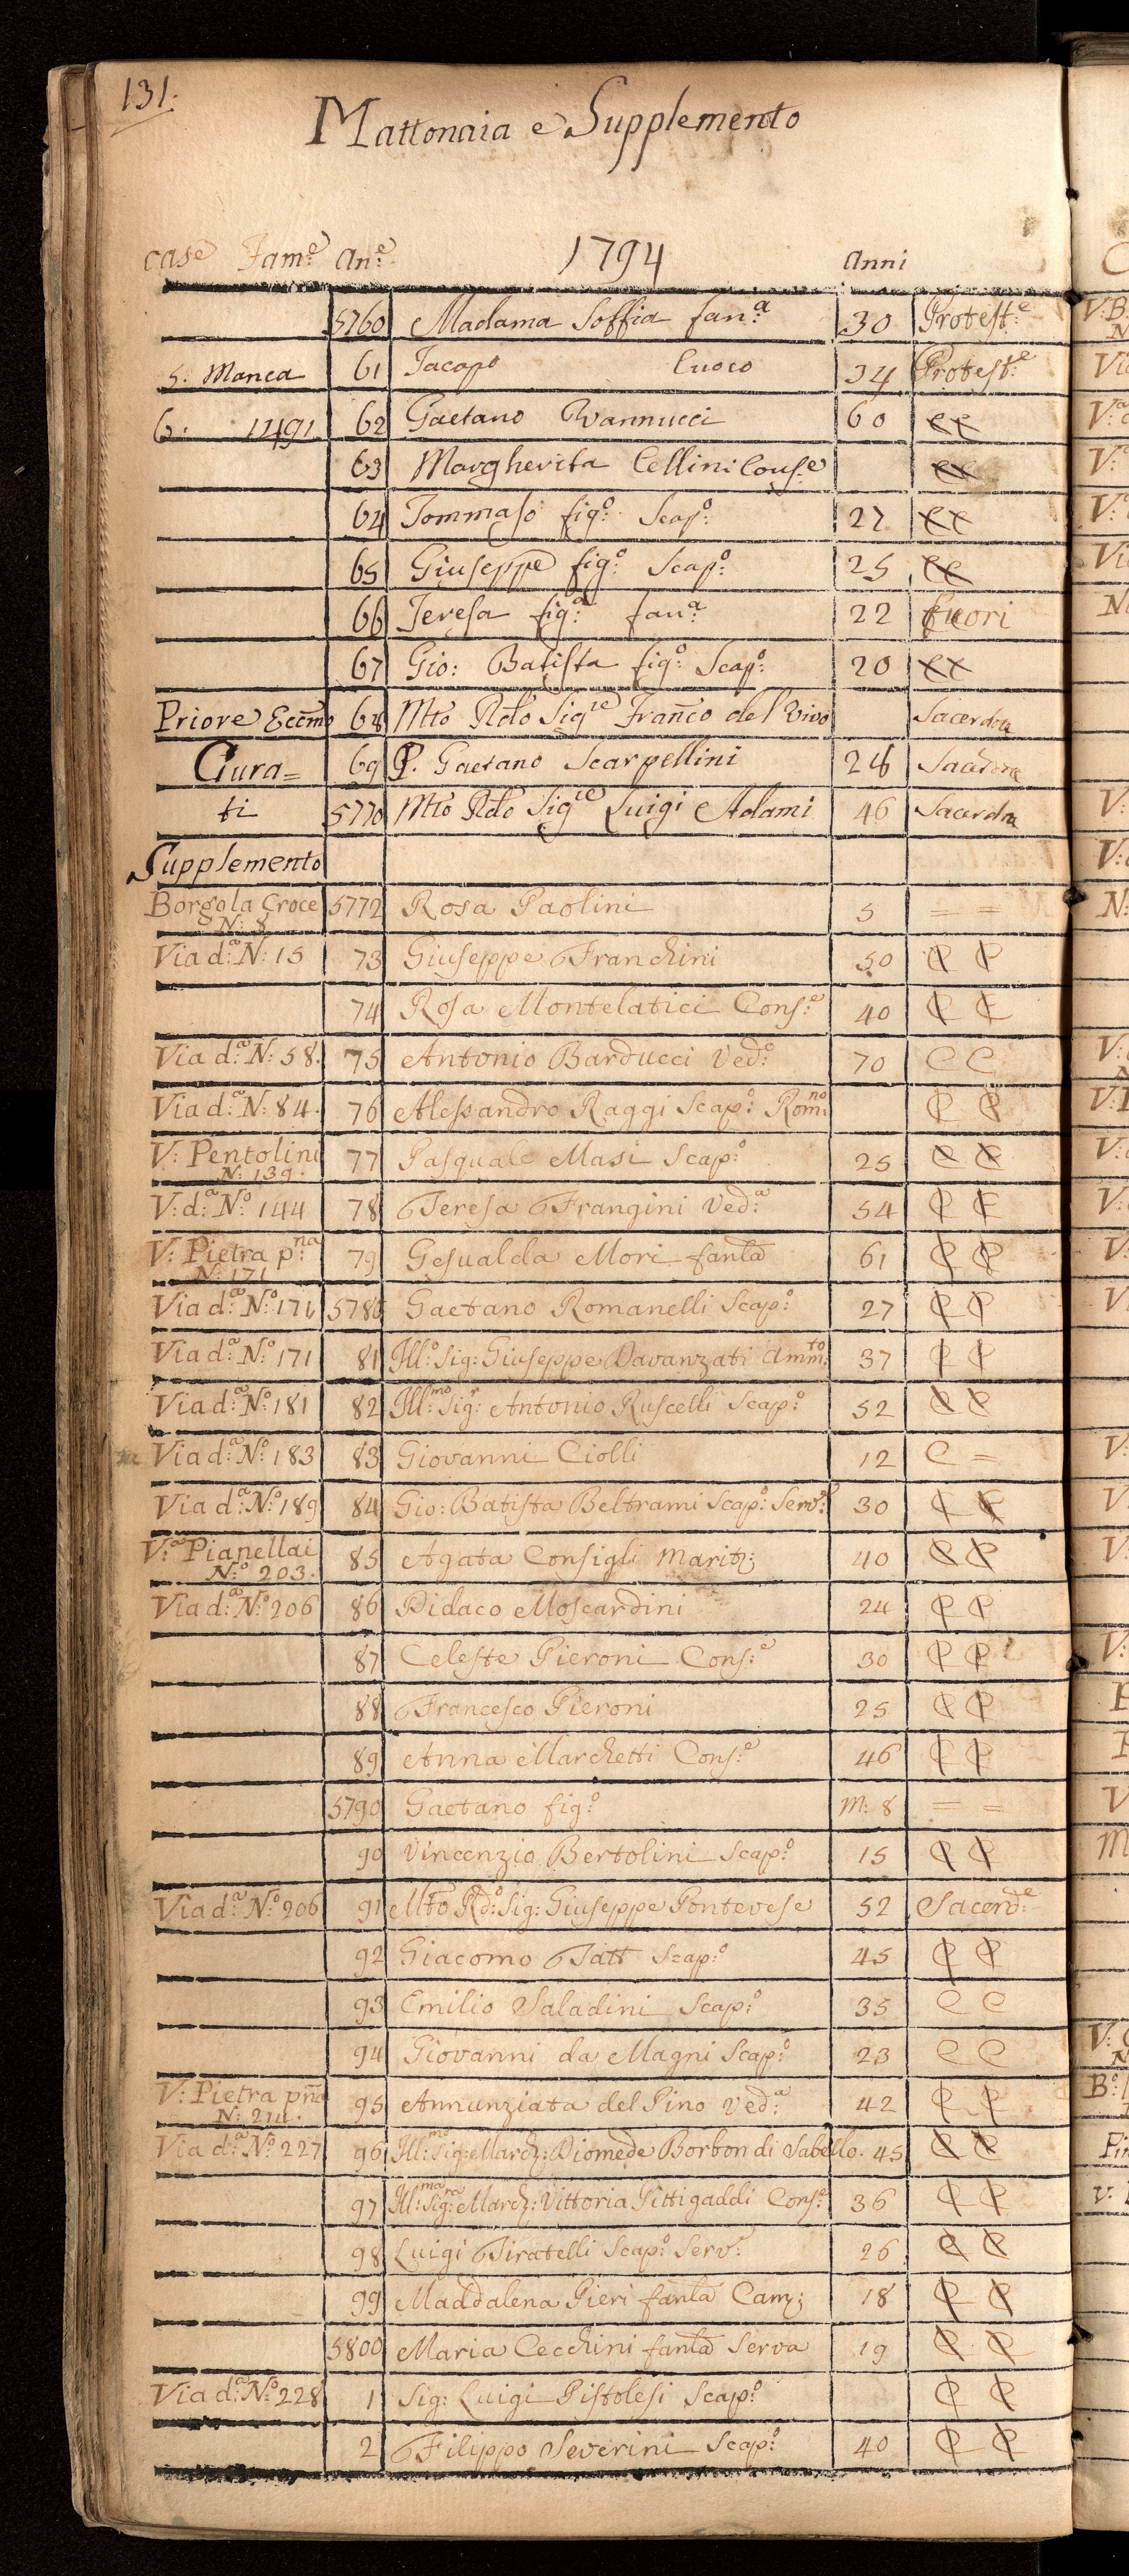 131.
Mattonaia e Supplemento
case Fam:e An:e 1794 Anni
5760 Madama Soffia fan:a 30 Protest:e
5. Manca 61 Jacopo Cuoco 34 Protest:e
6. 1491 62 Gaetano Vannucci 60 CC
63 Margherita Cellini Cons:e CC
64 Tommaso fig:o Scap:o 27 CC
65 Giuseppe fig:o Scap:o 25 CC
66 Teresa fig:a fan:a 22 fuori
67 Gio: Batista fig:o Scap:o 20 CC
Priore Eccmo 68 Mto Rdo Sigre Franco del Vivo Sacerdote
Cura= 69 P. Gaetano Scarpellini 28 Sacerdote
ti 5770 Mto Rdo Sigre Luigi Adami 46 Sacerdote
Supplemento
Borgo la Croce 5772 Rosa Paolini 5 = =
N: 8
Via d:a N: 15 73 Giuseppe Franchini 50 C C
74 Rosa Montelatici Cons:e 40 C C
Via d:a N: 58. 75 Antonio Barducci Ved:o 70 C C
Via d:a N: 84. 76 Alessandro Raggi Scap:o Rom:no C C
V: Pentolini 77 Pasquale Masi Scap:o 25 C C
N: 139.
V: d:a N:o 144 78 Teresa Frangini Ved:a 54 C C
V: Pietra p:na 79 Gesualda Mori fanla 61 C C
N: 171
Via d:a N:o 171 5780 Gaetano Romanelli Scap:o 27 C C
Via d:a N:o 171 81 Ill:o Sig: Giuseppe Davanzati Amm:to 37 C C
Via d:a N:o 181 82 Ill:mo Sig:r Antonio Ruscelli Scap:o 52 C C
Via d:a N:o 183 83 Giovanni Ciolli 12 C =
Via d:a N:o 189 84 Gio: Batista Beltrami Scap:o Serv:e 30 C C
V:a Pianellai 85 Agata Consigli Marit: 40 C C
N:o 203.
Via d:a N:o 206 86 Didaco Moscardini 24 C C
87 Celeste Pieroni Cons:e 30 C C
88 Francesco Pieroni 25 C C
89 Anna Marchetti Cons:e 46 C C
5790 Gaetano fig:o M: 8 = =
90 Vincenzio Bertolini Scap:o 15 C C
Via d:a N:o 206 91 Mto Rd:o Sig: Giuseppe Pontevese 52 Sacerd:e
92 Giacomo Tatt Scap:o 45 C C
93 Emilio Saladini Scap:o 35 C C
94 Giovanni da Magni Scap:o 23 C C
V: Pietra pña 95 Annunziata del Pino Ved:a 42 C C
N: 214.
Via d:a N:o 227 96 Ill:mo Sig: March: Diomede Borbon di Sabello. 45 C C
97 Ill:ma Sig:ra March: Vittoria Pittigaddi Cons:e 36 C C
98 Luigi Tiratelli Scap:o Serv:e 26 C C
99 Maddalena Pieri fanla Cam: 18 C C
5800 Maria Cecchini fanla Serva 19 C C
Via d:a N:o 228 1 Sig: Luigi Pistolesi Scap:o C C
2 Filippo Severini Scap:o 40 C C